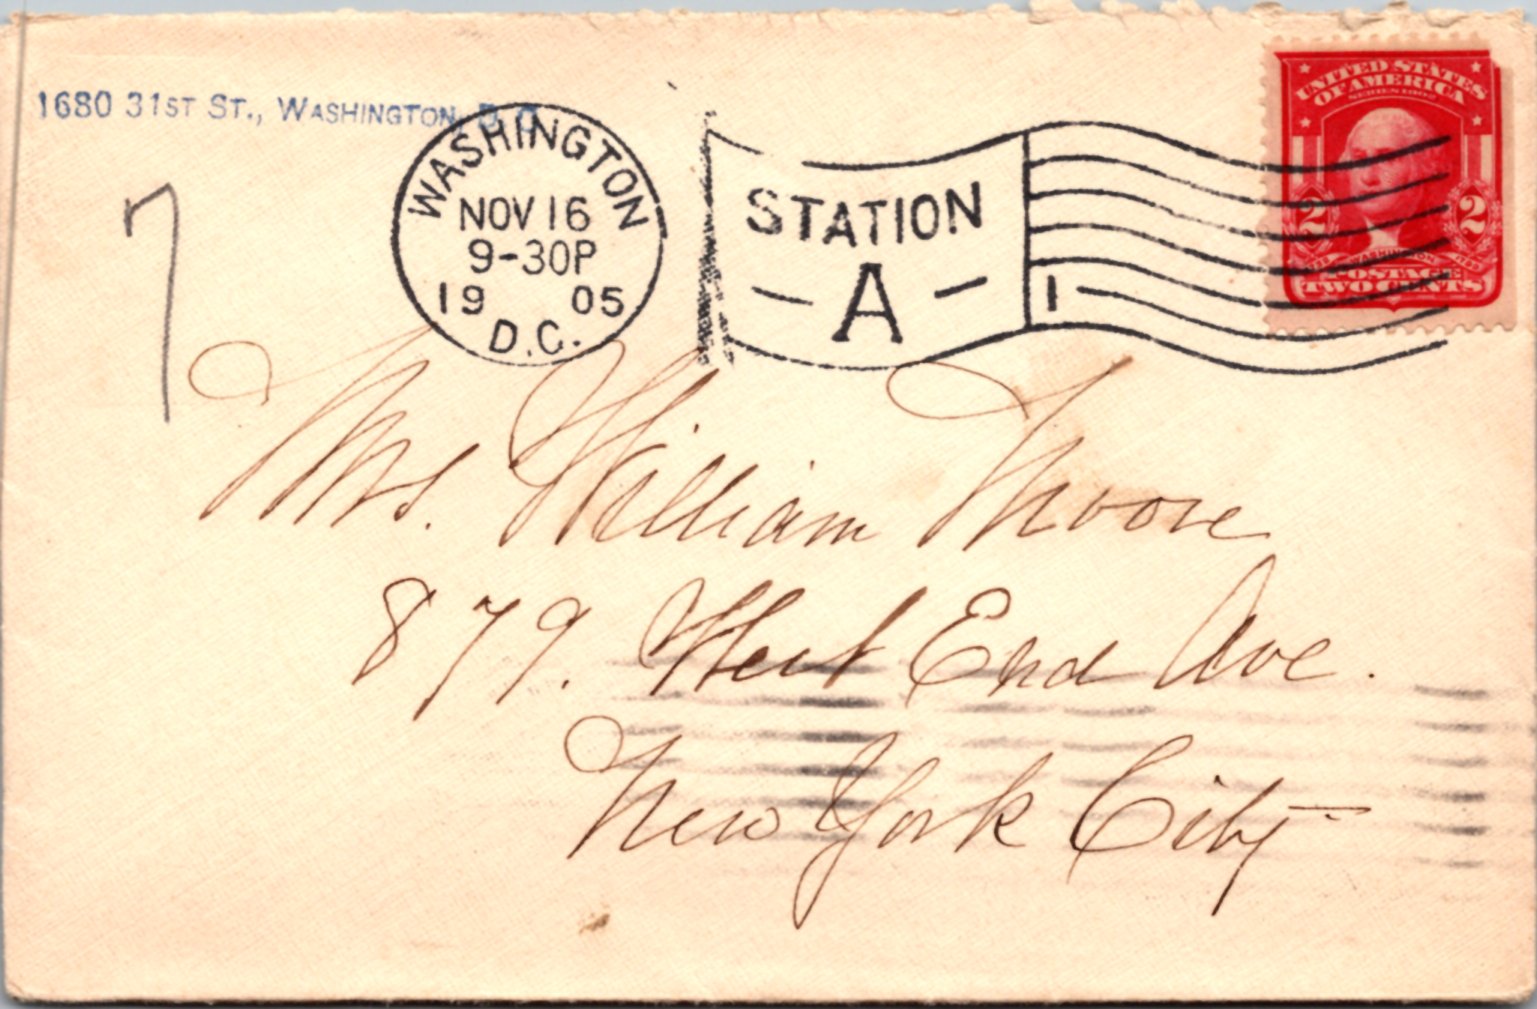 1680 31ST ST., WASHINGTON, D.C.
WASHINGTON
NOV 16
9-30P
19 05
D.C.
STATION
A
1
UNITED STATES
OF AMERICA
SERIES 1902
2 2
WASHINGTON
POSTAGE
TWO CENTS
7
Mrs. William Moore
879. West End Ave.
New York City